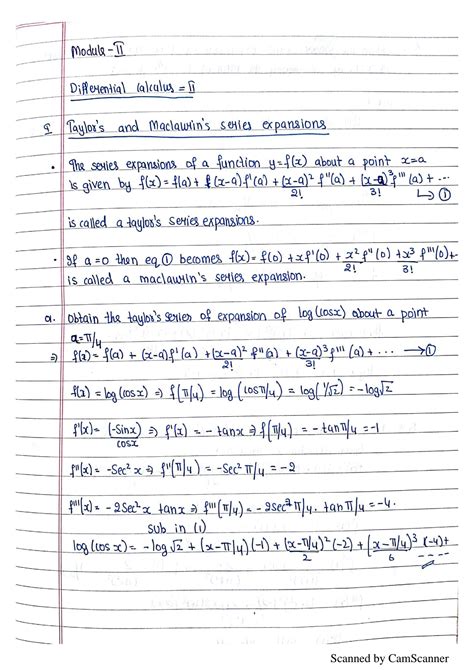 Module - II
Differential Calculus - II
I Taylor's and Maclaurin's series expansions
• The series expansions of a function y=f(x) about a point x=a
is given by f(x) = f(a) + (x-a)f'(a) + (x-a)²/2! f''(a) + (x-a)³/3! f'''(a) + ...
↳ ①
is called a taylor's series expansions.
• If a=0 then eq ① becomes f(x) = f(0) + xf'(0) + x²/2! f''(0) + x³/3! f'''(0)+
is called a maclaurin's series expansion.
Q. Obtain the taylor's series of expansion of log(cosx) about a point
a=π/4
⇒ f(x) = f(a) + (x-a)f'(a) + (x-a)²/2! f''(a) + (x-a)³/3! f'''(a) + ... →①
f(x) = log(cosx) ⇒ f(π/4) = log(cosπ/4) = log(1/√2) = -log√2
f'(x) = (-sinx)/cosx ⇒ f'(x) = -tanx ⇒ f(π/4) = -tanπ/4 = -1
f''(x) = -Sec²x ⇒ f''(π/4) = -Sec²π/4 = -2
f'''(x) = -2Sec²x tanx ⇒ f'''(π/4) = -2sec²π/4. tanπ/4 = -4.
sub in (1)
log(cosx) = -log√2 + (x-π/4)(-1) + (x-π/4)²/2 (-2) + (x-π/4)³/6 (-4)+
Scanned by CamScanner